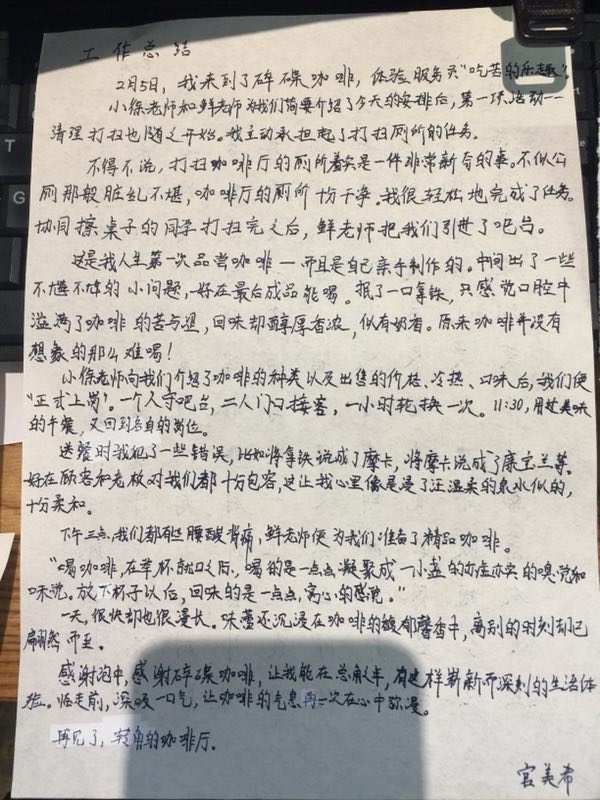 工作总结
2月5日，我来到了砗磲咖啡，体验服务员"吃苦的乐趣"。
小徐老师和鲜老师为我们简要介绍了今天的安排后，第一项活动——
清理打扫也随之开始。我主动承担起了打扫厕所的任务。
不得不说，打扫咖啡厅的厕所着实是一件非常新奇的事。不似公
厕那般脏乱不堪，咖啡厅的厕所十分干净。我很轻松地完成了任务。
协同擦桌子的同学打扫完之后，鲜老师把我们引进了吧台。
这是我人生第一次品尝咖啡—而且是自己亲手制作的。中间出了一些
不大不小的小问题，好在最后成品能喝。抿了一口拿铁，只感觉口腔中
溢满了咖啡的苦与涩，回味却醇厚香浓，似有奶香。原来咖啡并没有
想象的那么难喝！
小徐老师向我们介绍了咖啡的种类以及出售的价格、冷热、口味后，我们便
"正式上岗"。一个人守吧台，二人门口接客，一小时轮换一次。11:30，用过美味
的午餐，又回到各自的岗位。
送餐时我犯了一些错误，比如将拿铁说成了摩卡，将摩卡说成了康宝兰等。
好在顾客和老板对我们都十分包容，这让我心里像是浸了汪温柔的泉水似的，
十分柔和。
下午三点，我们都有些腰酸背痛，鲜老师便为我们准备了精品咖啡。
"喝咖啡，在举杯就口之后，喝的是一点点凝聚成一小盏的亦虚亦实的嗅觉和
味觉。放下杯子以后，回味的是一点点，离心的感觉。"
一天，很快却也很漫长。味蕾还沉浸在咖啡的馥郁馨香中，离别的时刻却已
翩然而至。
感谢泡中，感谢砗磲咖啡，让我能在总角之年，有这样崭新而深刻的生活体
验。临走前，深吸一口气，让咖啡的气息再一次在心中弥漫。
再见了，转角的咖啡厅。
宫美希